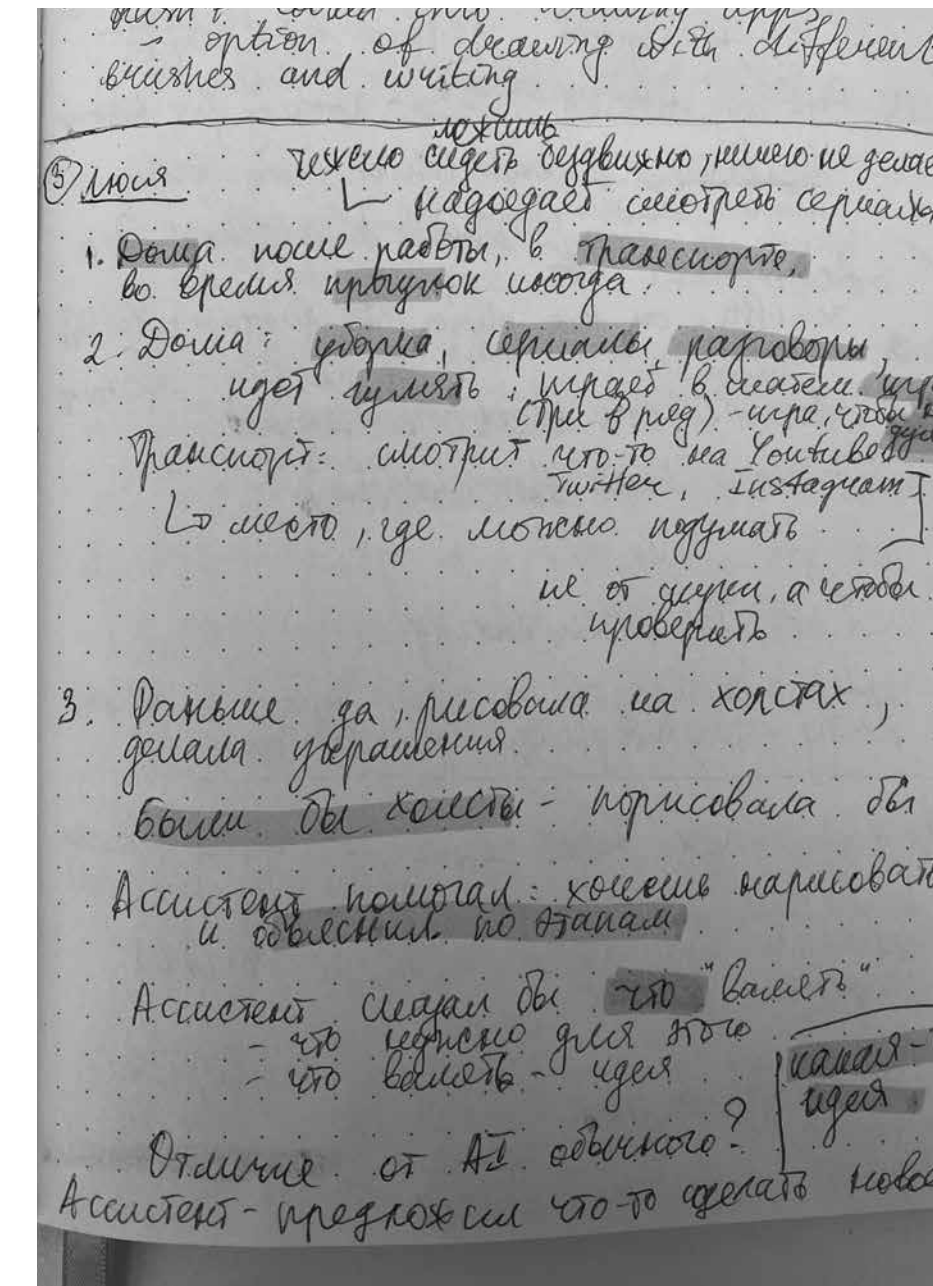 option of drawing with different
brushes and writing
⑤ Люся
сидеть бездвижно, ничего не делае
надоедает смотреть сериалы
1. Дома после работы, в транспорте,
во время прогулок иногда
2. Дома: уборка, сериалы, разговоры,
идёт гулять, играет в
(три в ряд) - игра, чтобы
Транспорт: смотрит что-то на Youtube
Twitter, Instagram
место, где можно подумать
не от скуки, а чтобы
проверить
3. Раньше да, рисовала на холстах,
делала украшения
Были бы холсты - порисовала бы
Ассистент помогал: хочешь нарисовать
и объяснил по этапам
Ассистент сказал бы что "валять"
- что нужно для этого
- что валять - идея
какая-
идея
Отличие от AI обычного?
Ассистент - предложил что-то сделать новое